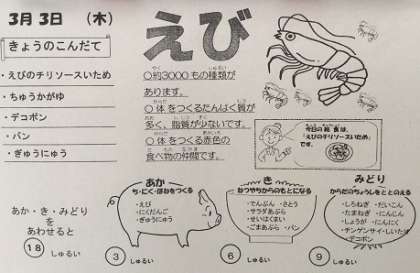 3月3日 （木）
きょうのこんだて
・えびのチリソースいため
・ちゅうかがゆ
・デコポン
・パン
・ぎゅうにゅう
えび
○約3000もの種類が
あります。
○体をつくるたんぱく質が
多く、脂質が少ないです。
○体をつくる赤色の
食べ物の仲間です。
今日の給食は、
えびのチリソースいため
です。
あか・き・みどり
を
あわせると
18 しゅるい
あか
ち・にく・ほねをつくる
・えび
・にくだんご
・ぎゅうにゅう
3 しゅるい
き
ねつやちからのもとになる
・でんぷん ・さとう
・サラダあぶら
・せいはくまい
・ごまあぶら ・パン
6 しゅるい
みどり
からだのちょうしをととのえる
・しろねぎ ・だいこん
・たまねぎ ・にんじん
・しょうが ・にんにく
・チンゲンサイ・しいたけ
・デコポン
9 しゅるい